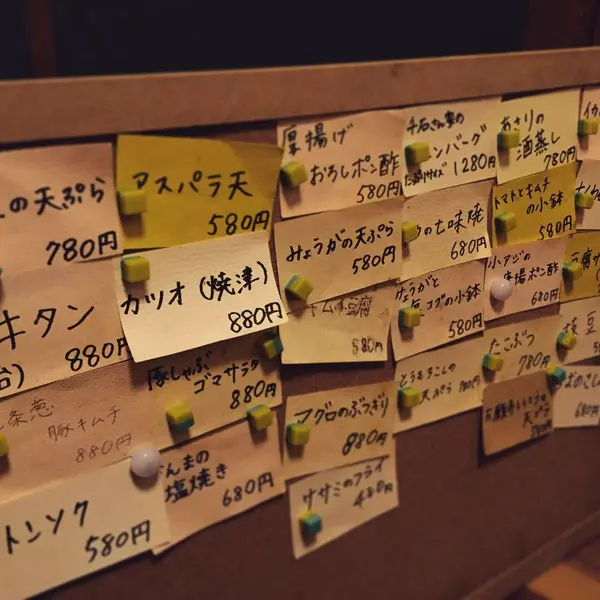 の天ぷら
780円
アスパラ天
580円
厚揚げ
おろしポン酢
580円
千石さん家の
ンバーグ
1280円
あさりの
酒蒸し
780円
キタン
880円
カツオ(焼津)
880円
みょうがの天ぷら
580円
の七味焼
680円
トマトとキムチ
の小鉢
580円
小アジの
揚ポン酢
680円
九条葱
豚キムチ
880円
豚しゃぶ
ゴマサラダ
880円
キムチ豆腐
みょうがと
の小鉢
580円
たこぶつ
780円
枝豆
トンソク
580円
さんまの
塩焼き
680円
マグロのぶつぎり
880円
とうもろこしの
天ぷら
780円
天ぷら
680円
ササミのフライ
480円